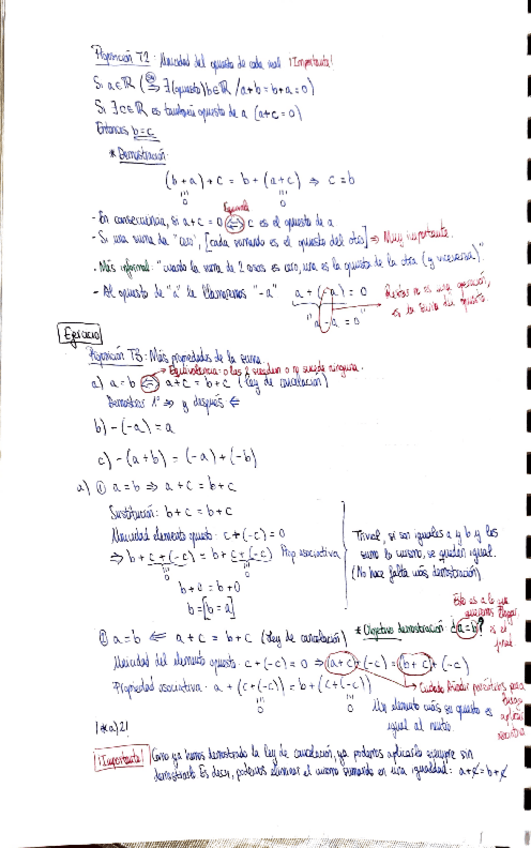 Proposición T2: Unicidad del opuesto de cada real ¡Importante!
Si a∈ℝ (⇒ ∃(opuesto) b∈ℝ / a+b = b+a = 0)
Si ∃c∈ℝ es también opuesto de a (a+c = 0)
Entonces b=c
* Demostración:
(b+a)+c = b+(a+c) ⇒ c=b
0 0
Equival
- En consecuencia, si a+c = 0 ⇔ c es el opuesto de a
- Si una suma da "cero", [cada sumando es el opuesto del otro] ⇒ Muy importante.
- Más informal: "cuando la suma de 2 cosas es cero, una es la opuesta de la otra (y viceversa)."
- Al opuesto de "a" le llamaremos "-a" a + (-a) = 0
Restar no es una operación, es la suma del opuesto.
a - a = 0
Ejercicio
Proposición T3: Más propiedades de la suma
Equivalencia: o las 2 suceden o no sucede ninguna.
a) a=b ⇔ a+c = b+c (Ley de cancelación)
Demostrar 1º ⇒ y después ⇐
b) -(-a) = a
c) -(a+b) = (-a)+(-b)
a) ① a=b ⇒ a+c = b+c
Sustitución: b+c = b+c
Unicidad elemento opuesto: c+(-c) = 0
⇒ b+c+(-c) = b+c+(-c) Prop asociativa
0 0
b+0 = b+0
b=[b=a]
Trivial, si son iguales a y b y les
sumo lo mismo, se quedan igual.
(No hace falta más demostración)
Esto es a lo que queremos llegar
② a=b ⇐ a+c = b+c (Ley de cancelación) * Objetivo demostración ¿a=b? es el final
Unicidad del elemento opuesto: c+(-c) = 0 ⇒ (a+c)+(-c) = (b+c)+(-c)
Propiedad asociativa: a+(c+(-c)) = b+(c+(-c))
0 0
Cuidado Añadir paréntesis para
Un elemento más su opuesto es
igual al neutro
¡Importante! Como ya hemos demostrado la ley de cancelación, ya podemos aplicarla siempre sin
demostrarlo. Es decir, podemos eliminar el mismo sumando en una igualdad: a+c = b+c